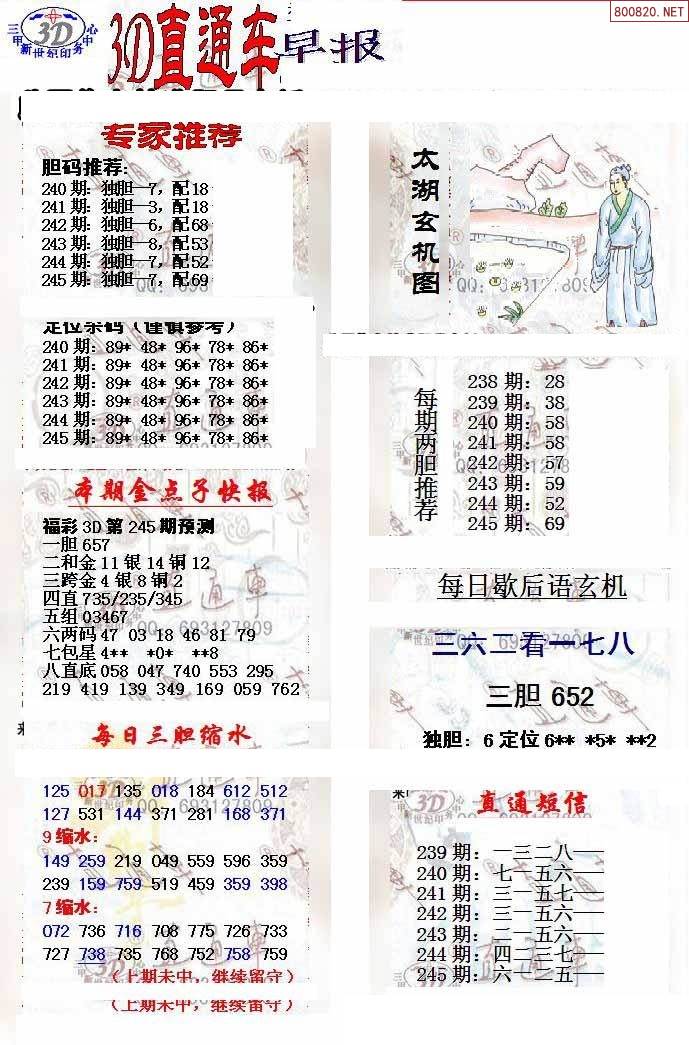 800820.NET
三甲 3D 中心
新世纪印务
3D直通车早报
专家推荐
胆码推荐:
240期: 独胆—7, 配18
241期: 独胆—3, 配18
242期: 独胆—6, 配68
243期: 独胆—8, 配53
244期: 独胆—7, 配52
245期: 独胆—7, 配69
定位杀码（谨慎参考）
240期: 89* 48* 96* 78* 86*
241期: 89* 48* 96* 78* 86*
242期: 89* 48* 96* 78* 86*
243期: 89* 48* 96* 78* 86*
244期: 89* 48* 96* 78* 86*
245期: 89* 48* 96* 78* 86*
本期金点子快报
福彩3D第245期预测
一胆657
二和金11银14铜12
三跨金4银8铜2
四直735/235/345
五组03467
六两码47 03 18 46 81 79
七包星4** *0* **8
八直底058 047 740 553 295
219 419 139 349 169 059 762
每日三胆缩水
125 017 135 018 184 612 512
127 531 144 371 281 168 371
9缩水:
149 259 219 049 559 596 359
239 159 759 519 459 359 398
7缩水:
072 736 716 708 775 726 733
727 738 735 768 752 758 759
（上期未中，继续留守）
（上期未中，继续留守）
太湖玄机图
QQ: 693127809
每期两胆推荐
238期: 28
239期: 38
240期: 58
241期: 58
242期: 57
243期: 59
244期: 52
245期: 69
每日歇后语玄机
三六二看一七八
三胆 652
独胆: 6 定位6** *5* **2
直通短信
239期: 一三二八一一
240期: 七一五六一一
241期: 三一五七一一
242期: 三一五六一一
243期: 二一五六一一
244期: 四二三七一一
245期: 六一二五一一